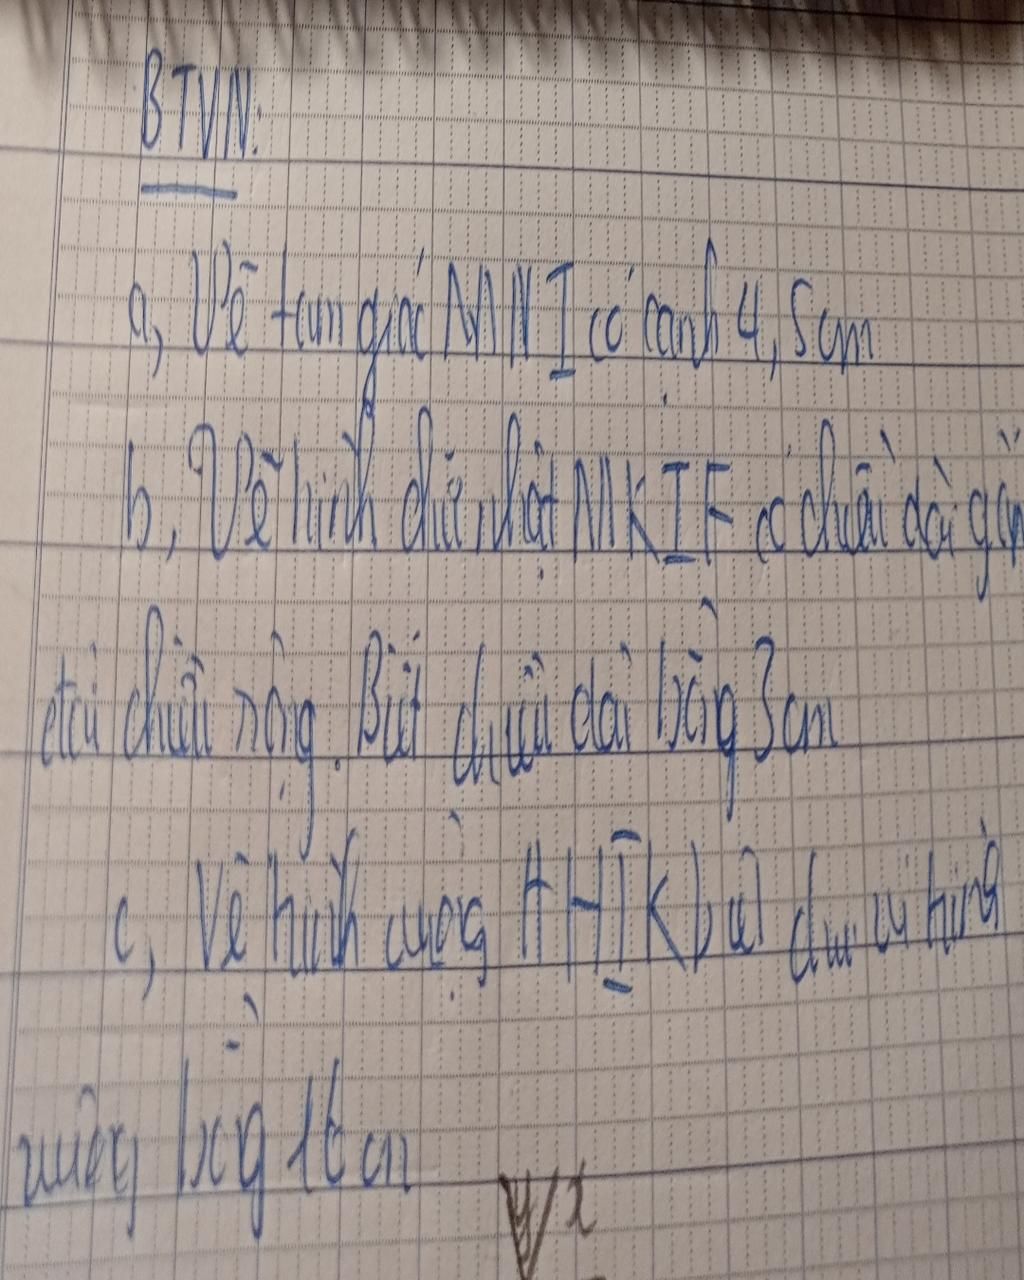 BTVN:
a, Vẽ tam giác MNI có cạnh 4,5cm
b, Vẽ hình chữ nhật MKIF có chiều dài gấp
đôi chiều rộng. Biết chiều dài bằng 3cm
c, Vẽ hình vuông AHIK biết chu vi hình
vuông bằng 16 cm